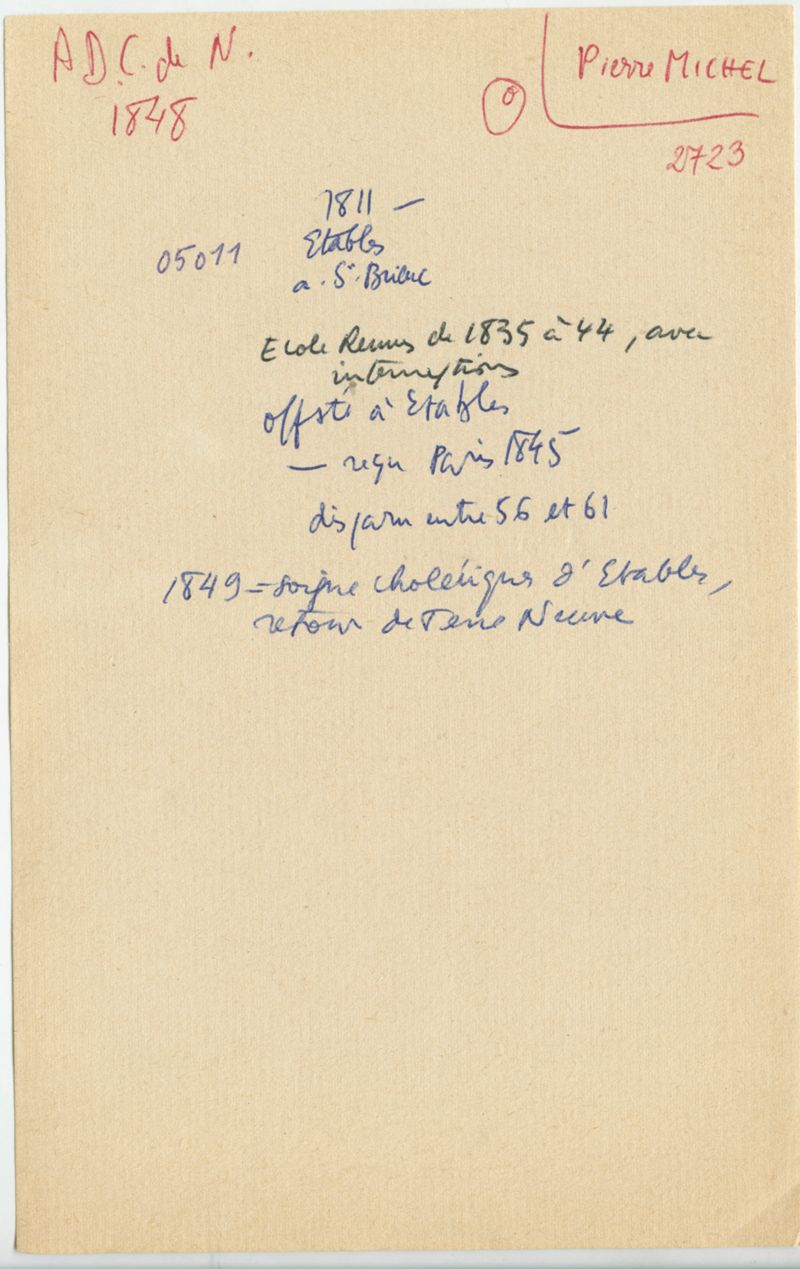 A D.C. de N.
1848
Pierre MICHEL
2723
1811 —
05011
Etables
a. St. Brieuc
Ecole Rennes de 1835 à 44, avec
interruptions
off sté à Etables
— reçu Paris 1845
disparu entre 56 et 61
1849 = soigne cholériques d'Etables,
retour de Terre Neuve